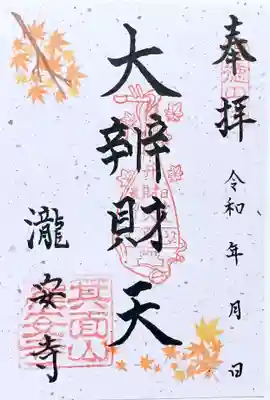 奉拝
令和 年 月 日
大辨財天
瀧安寺
箕面山